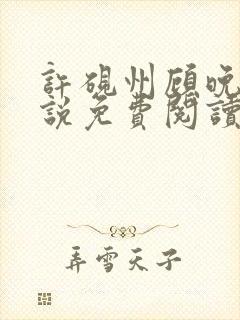 許硯州顧晚
說免費閱讀
弄雪天子